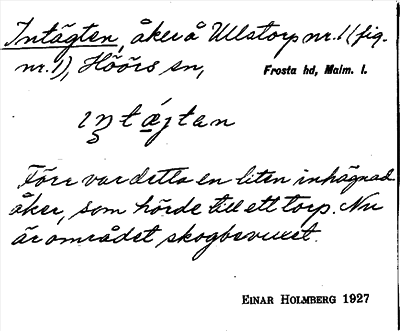 Intägten, åker å Ullstorp nr. 1 (fig.
nr. 1), Höörs sn, Frosta hd, Malm. l.
ịn̥tǽjtan
Förr var detta en liten inhägnad
åker, som hörde till ett torp. Nu
är området skogbevuxet.
EINAR HOLMBERG 1927